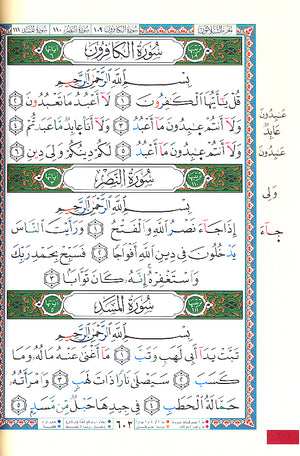 سُورَةُ الكَافِرُونَ
بِسْمِ اللَّهِ الرَّحْمَٰنِ الرَّحِيمِ
قُلْ يَٰٓأَيُّهَا ٱلْكَٰفِرُونَ ١ لَآ أَعْبُدُ مَا تَعْبُدُونَ ٢
وَلَآ أَنتُمْ عَٰبِدُونَ مَآ أَعْبُدُ ٣ وَلَآ أَنَا۠ عَابِدٌ مَّا عَبَدتُّمْ ٤
وَلَآ أَنتُمْ عَٰبِدُونَ مَآ أَعْبُدُ ٥ لَكُمْ دِينُكُمْ وَلِىَ دِينِ ٦
سُورَةُ النَّصْرِ
بِسْمِ اللَّهِ الرَّحْمَٰنِ الرَّحِيمِ
إِذَا جَآءَ نَصْرُ ٱللَّهِ وَٱلْفَتْحُ ١ وَرَأَيْتَ ٱلنَّاسَ
يَدْخُلُونَ فِى دِينِ ٱللَّهِ أَفْوَاجًا ٢ فَسَبِّحْ بِحَمْدِ رَبِّكَ
وَٱسْتَغْفِرْهُ إِنَّهُۥ كَانَ تَوَّابًۢا ٣
سُورَةُ المَسَدِ
بِسْمِ اللَّهِ الرَّحْمَٰنِ الرَّحِيمِ
تَبَّتْ يَدَآ أَبِى لَهَبٍ وَتَبَّ ١ مَآ أَغْنَىٰ عَنْهُ مَالُهُۥ وَمَا
كَسَبَ ٢ سَيَصْلَىٰ نَارًا ذَاتَ لَهَبٍ ٣ وَٱمْرَأَتُهُۥ
حَمَّالَةَ ٱلْحَطَبِ ٤ فِى جِيدِهَا حَبْلٌ مِّن مَّسَدٍۭ ٥
٦٠٣
عَٰبِدُونَ
عَابِدٌ
عَٰبِدُونَ
وَلِى
جَآءَ